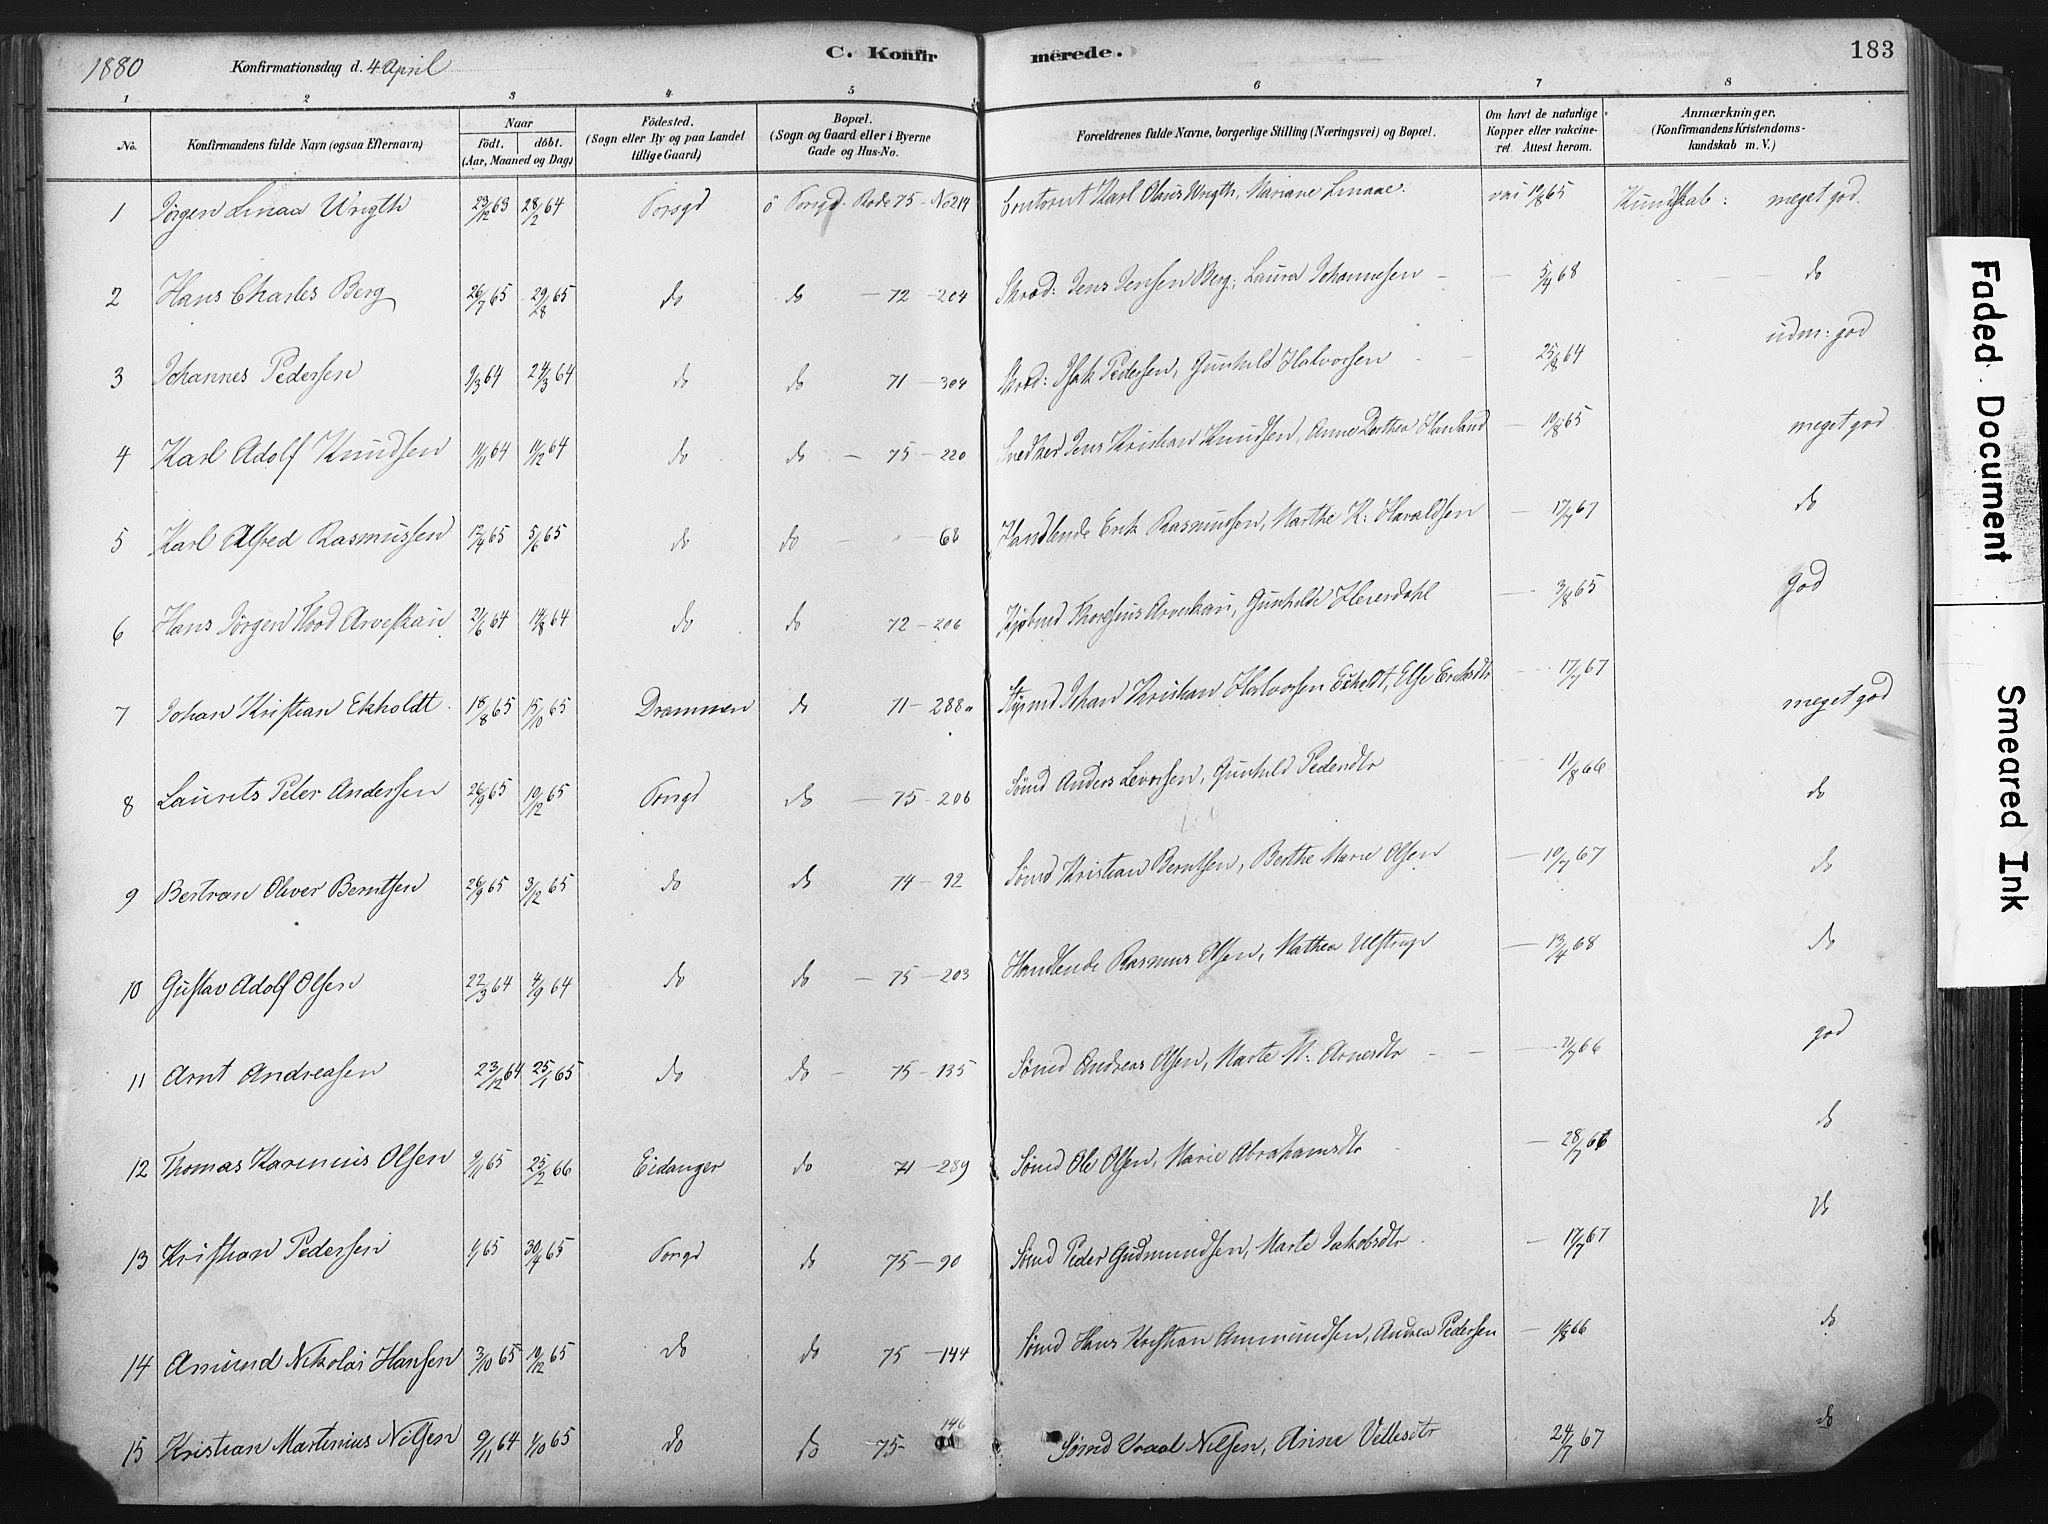 1880 Konfirmationsdag d. 4 April C. Konfirmerede. 183
1 2 3 4 5 6 7 8
No. Konfirmandens fulde Navn (ogsaa Efternavn) Naar födt. döbt. (Aar, Maaned og Dag) Födested. (Sogn eller By og paa Landet tillige Gaard) Bopæl. (Sogn og Gaard eller i Byerne Gade og Hus-No. Forældrenes fulde Navne, borgerlige Stilling (Næringsvei) og Bopæl. Om havt de naturlige Kopper eller vakcineret Attest herom. Anmærkninger. (Konfirmandens Kristendomskundskab m. V.)
1 Jörgen Linaa Wrigth 23/12 63 28/2 64 Porsgd ö Porsgd. Rode 75 - No 214 Karl Olaus Wrigth, Mariane Linaae. vac 19/8 65 Kundskab: meget god.
2 Hans Charles Berg 26/7 65 29/8 65 do do - 72 - 204 Skræd: Jens Jensen Berg, Laura Johannesen - 5/4 68 - do
3 Johannes Pedersen 9/3 64 24/3 64 do do 71 - 304 Skræd: Isak Pedersen, Gunhild Halvorsen 25/8 64 udm: god
4 Karl Adolf Knudsen 11/11 64 11/12 64 do do - 75 - 220 Snedker Jens Kristian Knudsen, Anne Dorthea - 19/8 65 meget god
5 Karl Alfred Rasmussen 13/4 65 5/6 65 do do - 68 Handlende Erik Rasmussen, Marthe K: Haraldsen - 17/7 67 do
6 Hans Jörgen Arveskau 21/6 64 14/8 64 do do 72 - 206 Thoresius Arveskau, Gunhilde Heierdahl - 3/8 65 god
7 Johan Kristian Ekholdt. 18/8 65 15/10 65 Drammen do 71 - 288a Styrmd Johan Kristian Halvorsen Ekholdt, Else Eriksdtr - 17/7 67 meget god
8 Laurits Peter Andersen 26/9 65 10/12 65 Porsgd do - 75 - 206 Sömd Anders Levorsen, Gunhild Pedersdtr 11/8 66 do
9 Bertran Oliver Berntsen 26/9 65 3/12 65 do do 74 - 92 Sömd Kristian Berntsen, Berthe Marie Olsen - 10/7 67 do
10 Gustav Adolf Olsen 22/3 64 4/9 64 do do - 75 - 203 Handlende Rasmus Olsen, Mathea Ulstrup - 13/4 68 do
11 Arnt Andreasen 23/12 64 25/1 65 do do - 75 - 135 Sömd Andreas Olsen, Marte M: Arnesdtr - 21/7 66 god
12 Thomas Karenius Olsen 9/11 65 25/2 66 Eidanger do 71 - 289 Sömd Ole Olsen, Marie Abrahamsdtr - 28/7 66 do
13 Kristian Pedersen 65 30/4 65 Porsgd do 75 - 90 Sömd Peder Gudmundsen, Marte Jakobsdtr. - 17/7 67 do
14 Amund Nikolai Hansen 3/10 65 10/12 65 do do 75 - 144 Sömd Hans Kristian Ammundsen, Andrea Pedersen - 66 do
15 Kristian Martinius Nilsen 9/11 64 1/10 65 do do 75 - 146 Sömd Vraal Nilsen, Anne Villesdtr 24/7 67 do
Faded Document
Smeared Ink